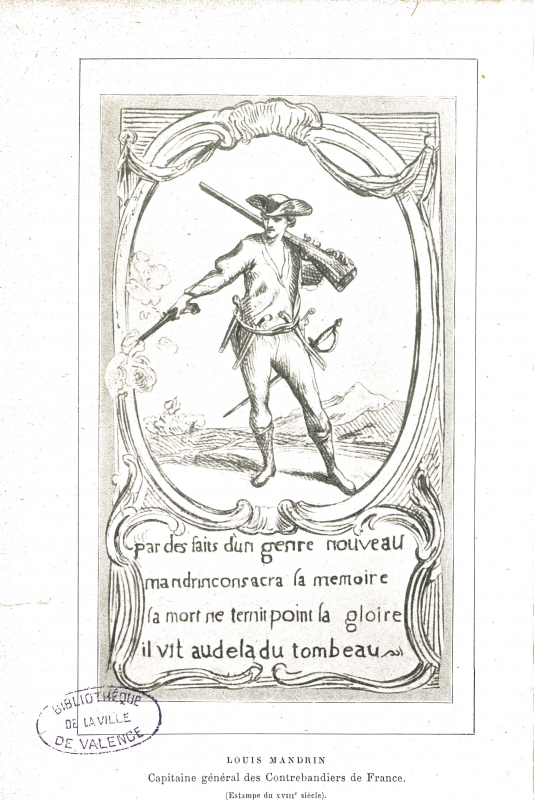 par des faits d'un genre nouveau
mandrin consacra sa memoire
sa mort ne ternit point sa gloire
il vit audela du tombeau
BIBLIOTHÉQUE
DE LA VILLE
DE VALENCE
LOUIS MANDRIN
Capitaine général des Contrebandiers de France.
(Estampe du XVIIIe siècle).